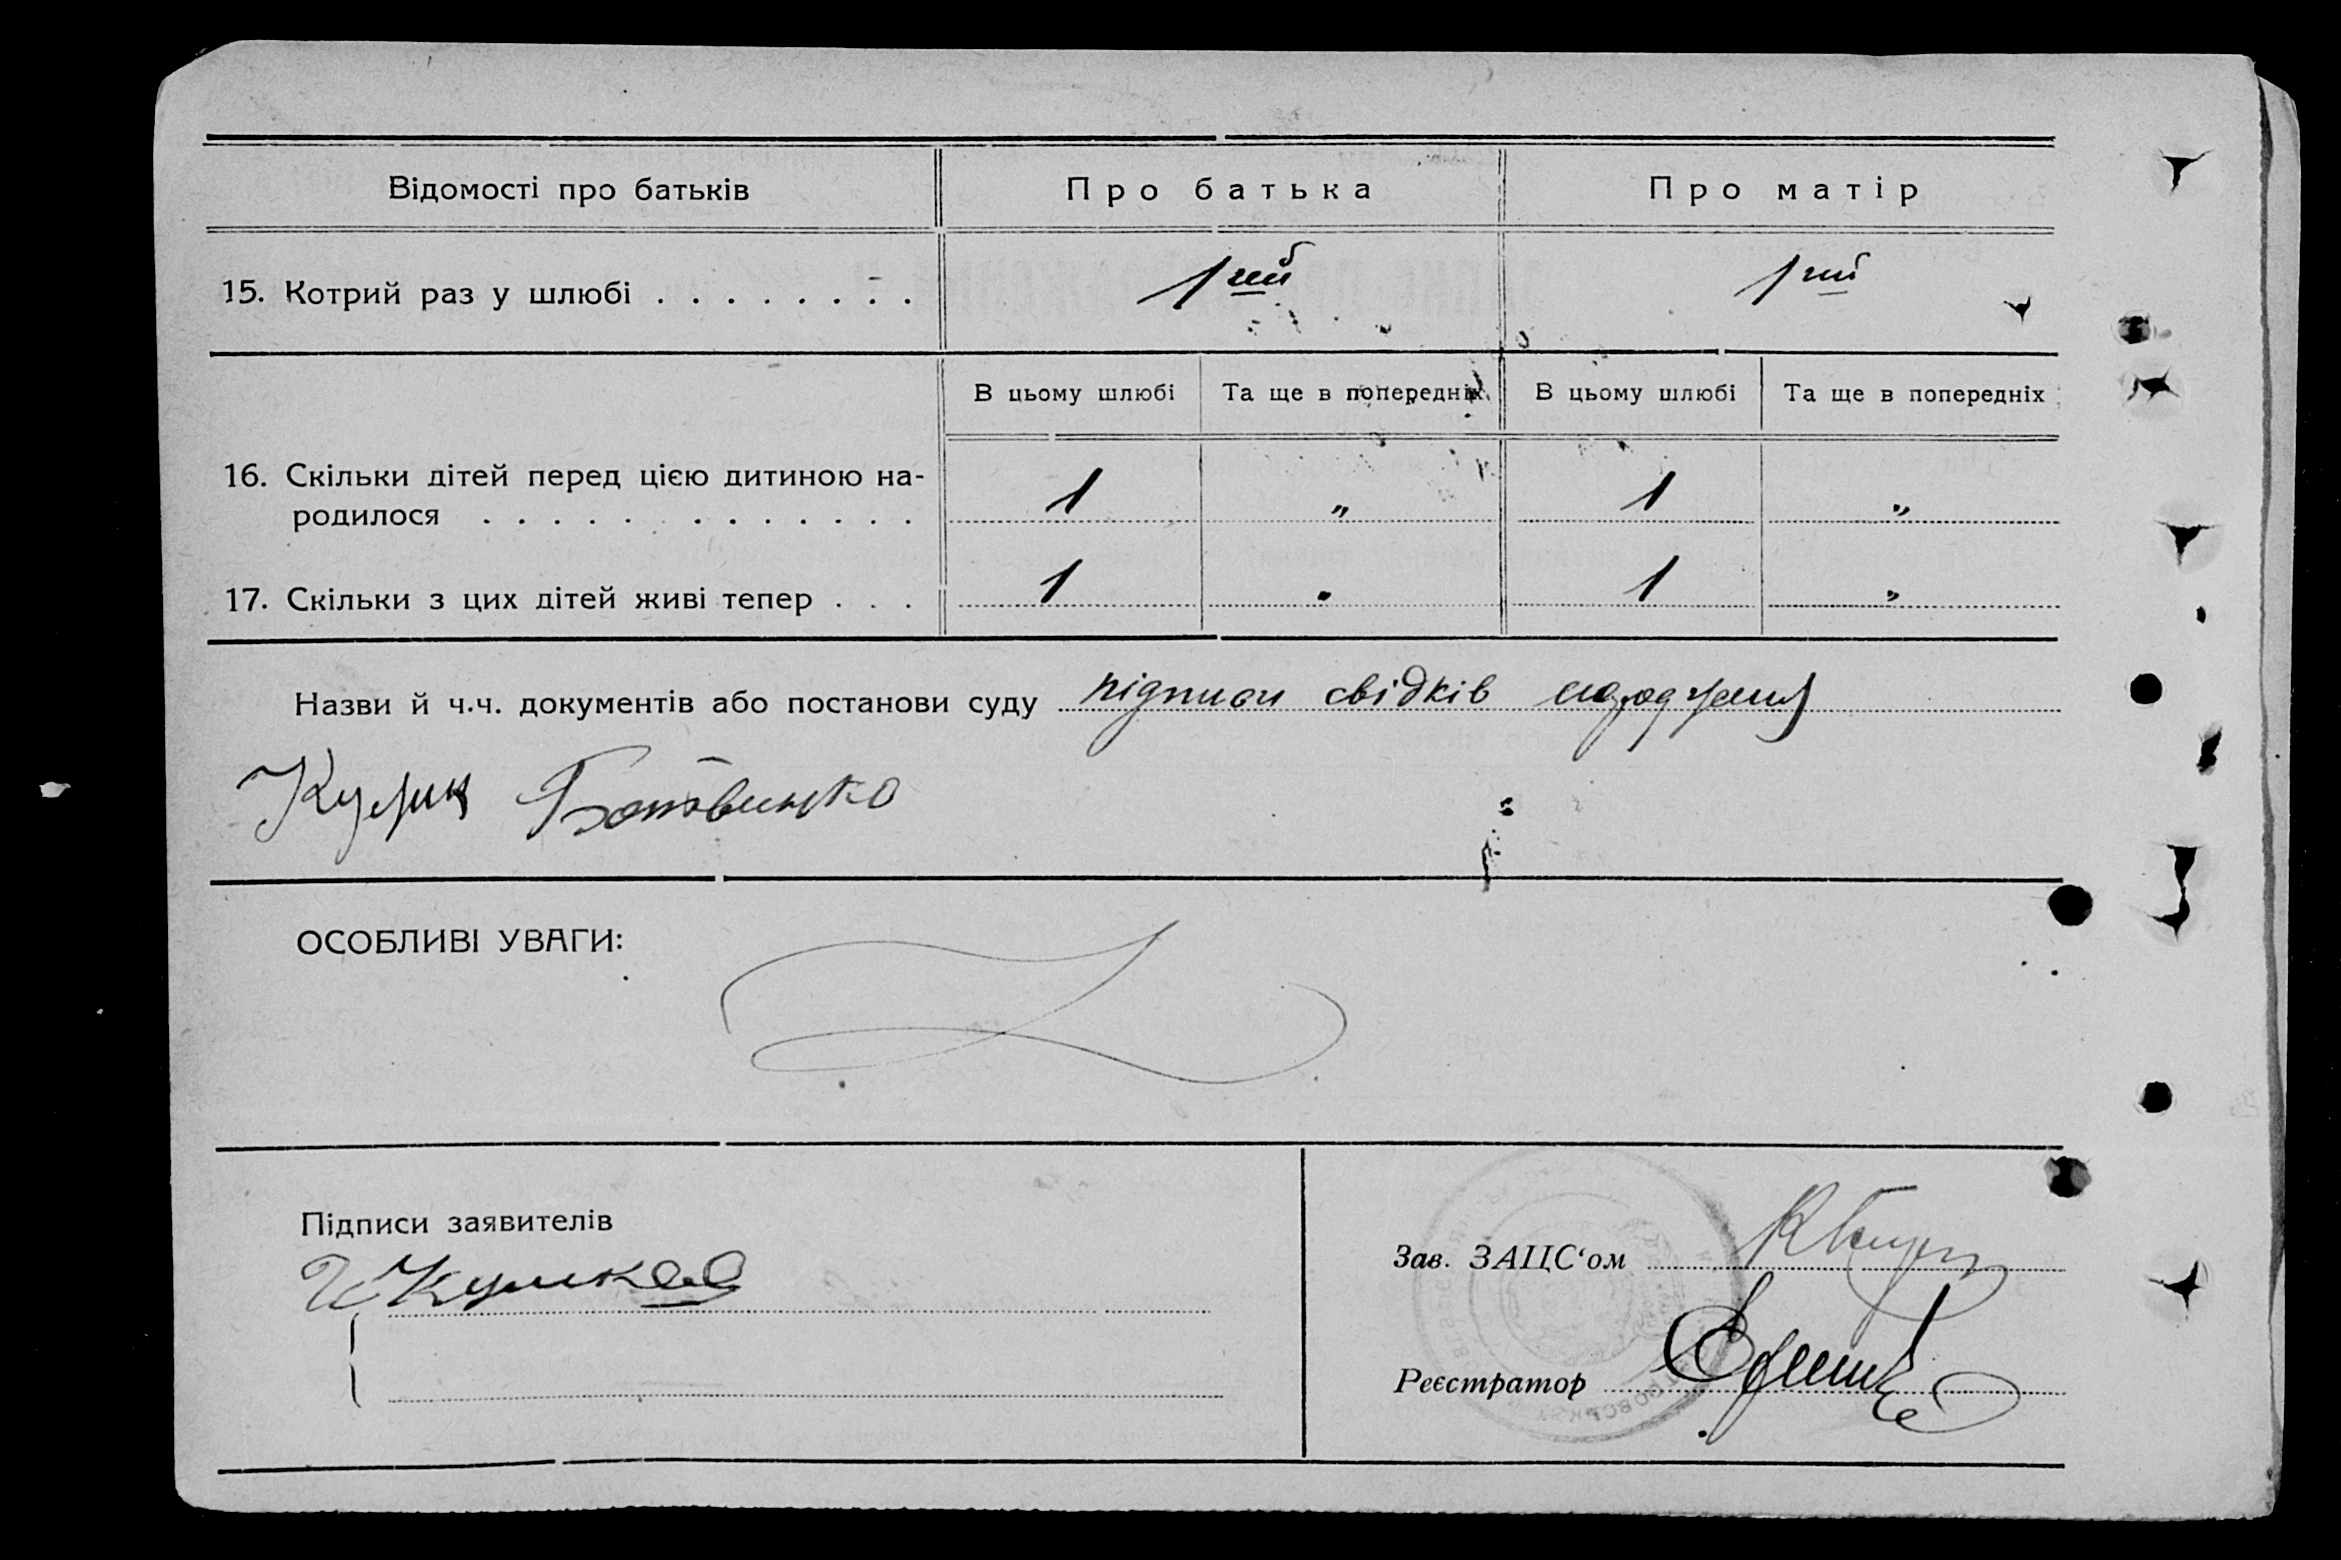 Відомості про батьків
Про батька
Про матір
15. Котрий раз у шлюбі . . . . . . . .
1ший
1ший
В цьому шлюбі
Та ще в попередніх
В цьому шлюбі
Та ще в попередніх
16. Скільки дітей перед цією дитиною на-
родилося . . . . . . . . . . . . .
1
"
1
"
17. Скільки з цих дітей живі тепер . . .
1
"
1
"
Назви й ч.ч. документів або постанови суду підписи свідків
Ботвинко
ОСОБЛИВІ УВАГИ:
Підписи заявителів
Зав. ЗАЦС‘ом
Реєстратор